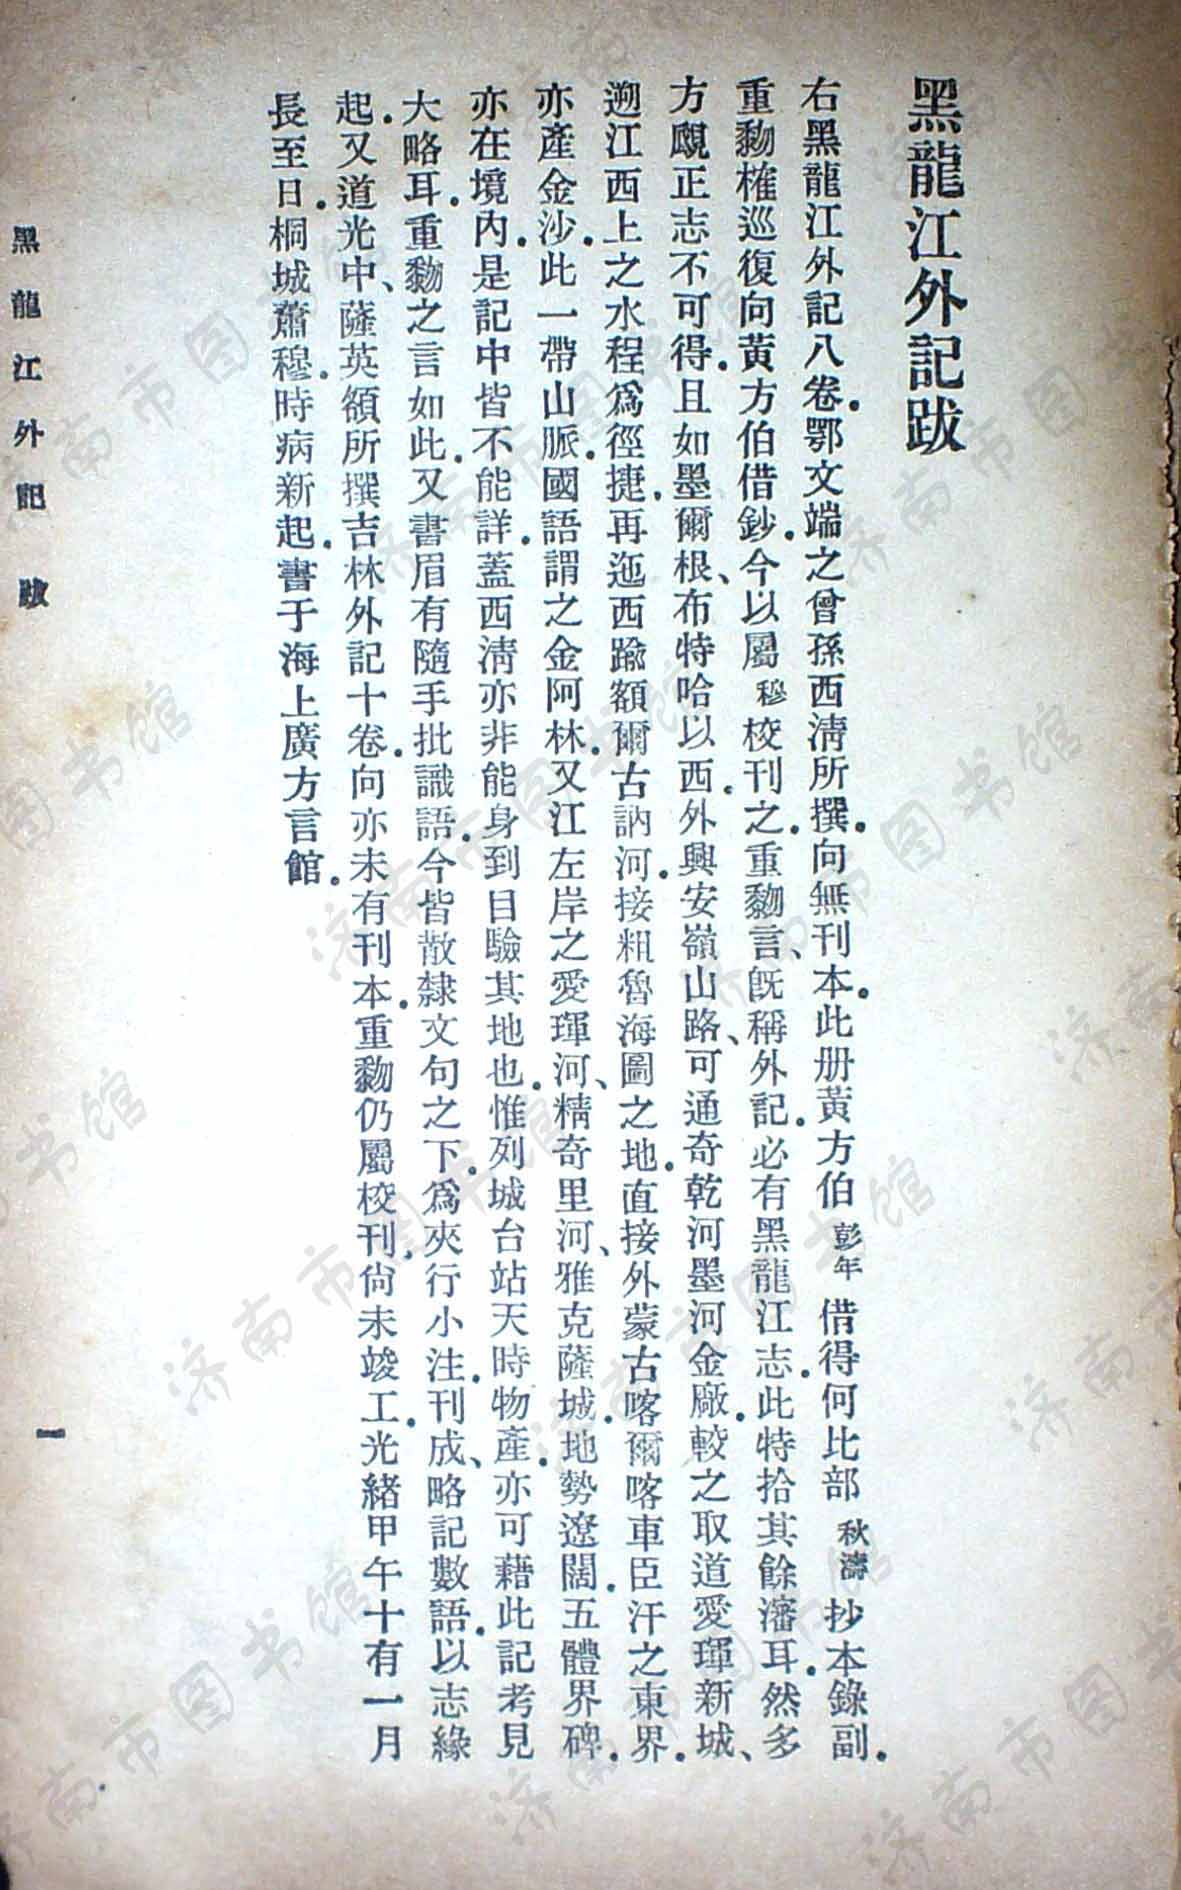 黑龍江外記跋
右黑龍江外記八卷。鄂文端之曾孫西淸所撰。向無刊本。此册黃方伯彭年借得何比部秋濤抄本錄副。
重黝榷巡復向黃方伯借鈔。今以屬穆校刊之。重黝言、旣稱外記。必有黑龍江志。此特拾其餘瀋耳。然多
方覷正志不可得。且如墨爾根、布特哈以西。外興安嶺山路、可通奇乾河墨河金廠。較之取道愛琿新城、
遡江西上之水程爲徑捷。再迤西踰額爾古訥河。接粗魯海圖之地。直接外蒙古喀爾喀車臣汗之東界。
亦產金沙。此一帶山脈。國語謂之金阿林。又江左岸之愛琿河、精奇里河、雅克薩城。地勢遼闊。五體界碑。
亦在境內。是記中皆不能詳。蓋西淸亦非能身到目驗其地也。惟列城台站天時物產。亦可藉此記考見
大略耳。重黝之言如此。又書眉有隨手批識語。今皆散隸文句之下。爲夾行小注。刊成、略記數語。以志緣
起。又道光中、薩英額所撰吉林外記十卷。向亦未有刊本。重黝仍屬校刊。尙未竣工。光緒甲午十有一月
長至日。桐城蕭穆。時病新起。書于海上廣方言館。
黑龍江外記 跋
一
济南市图书馆